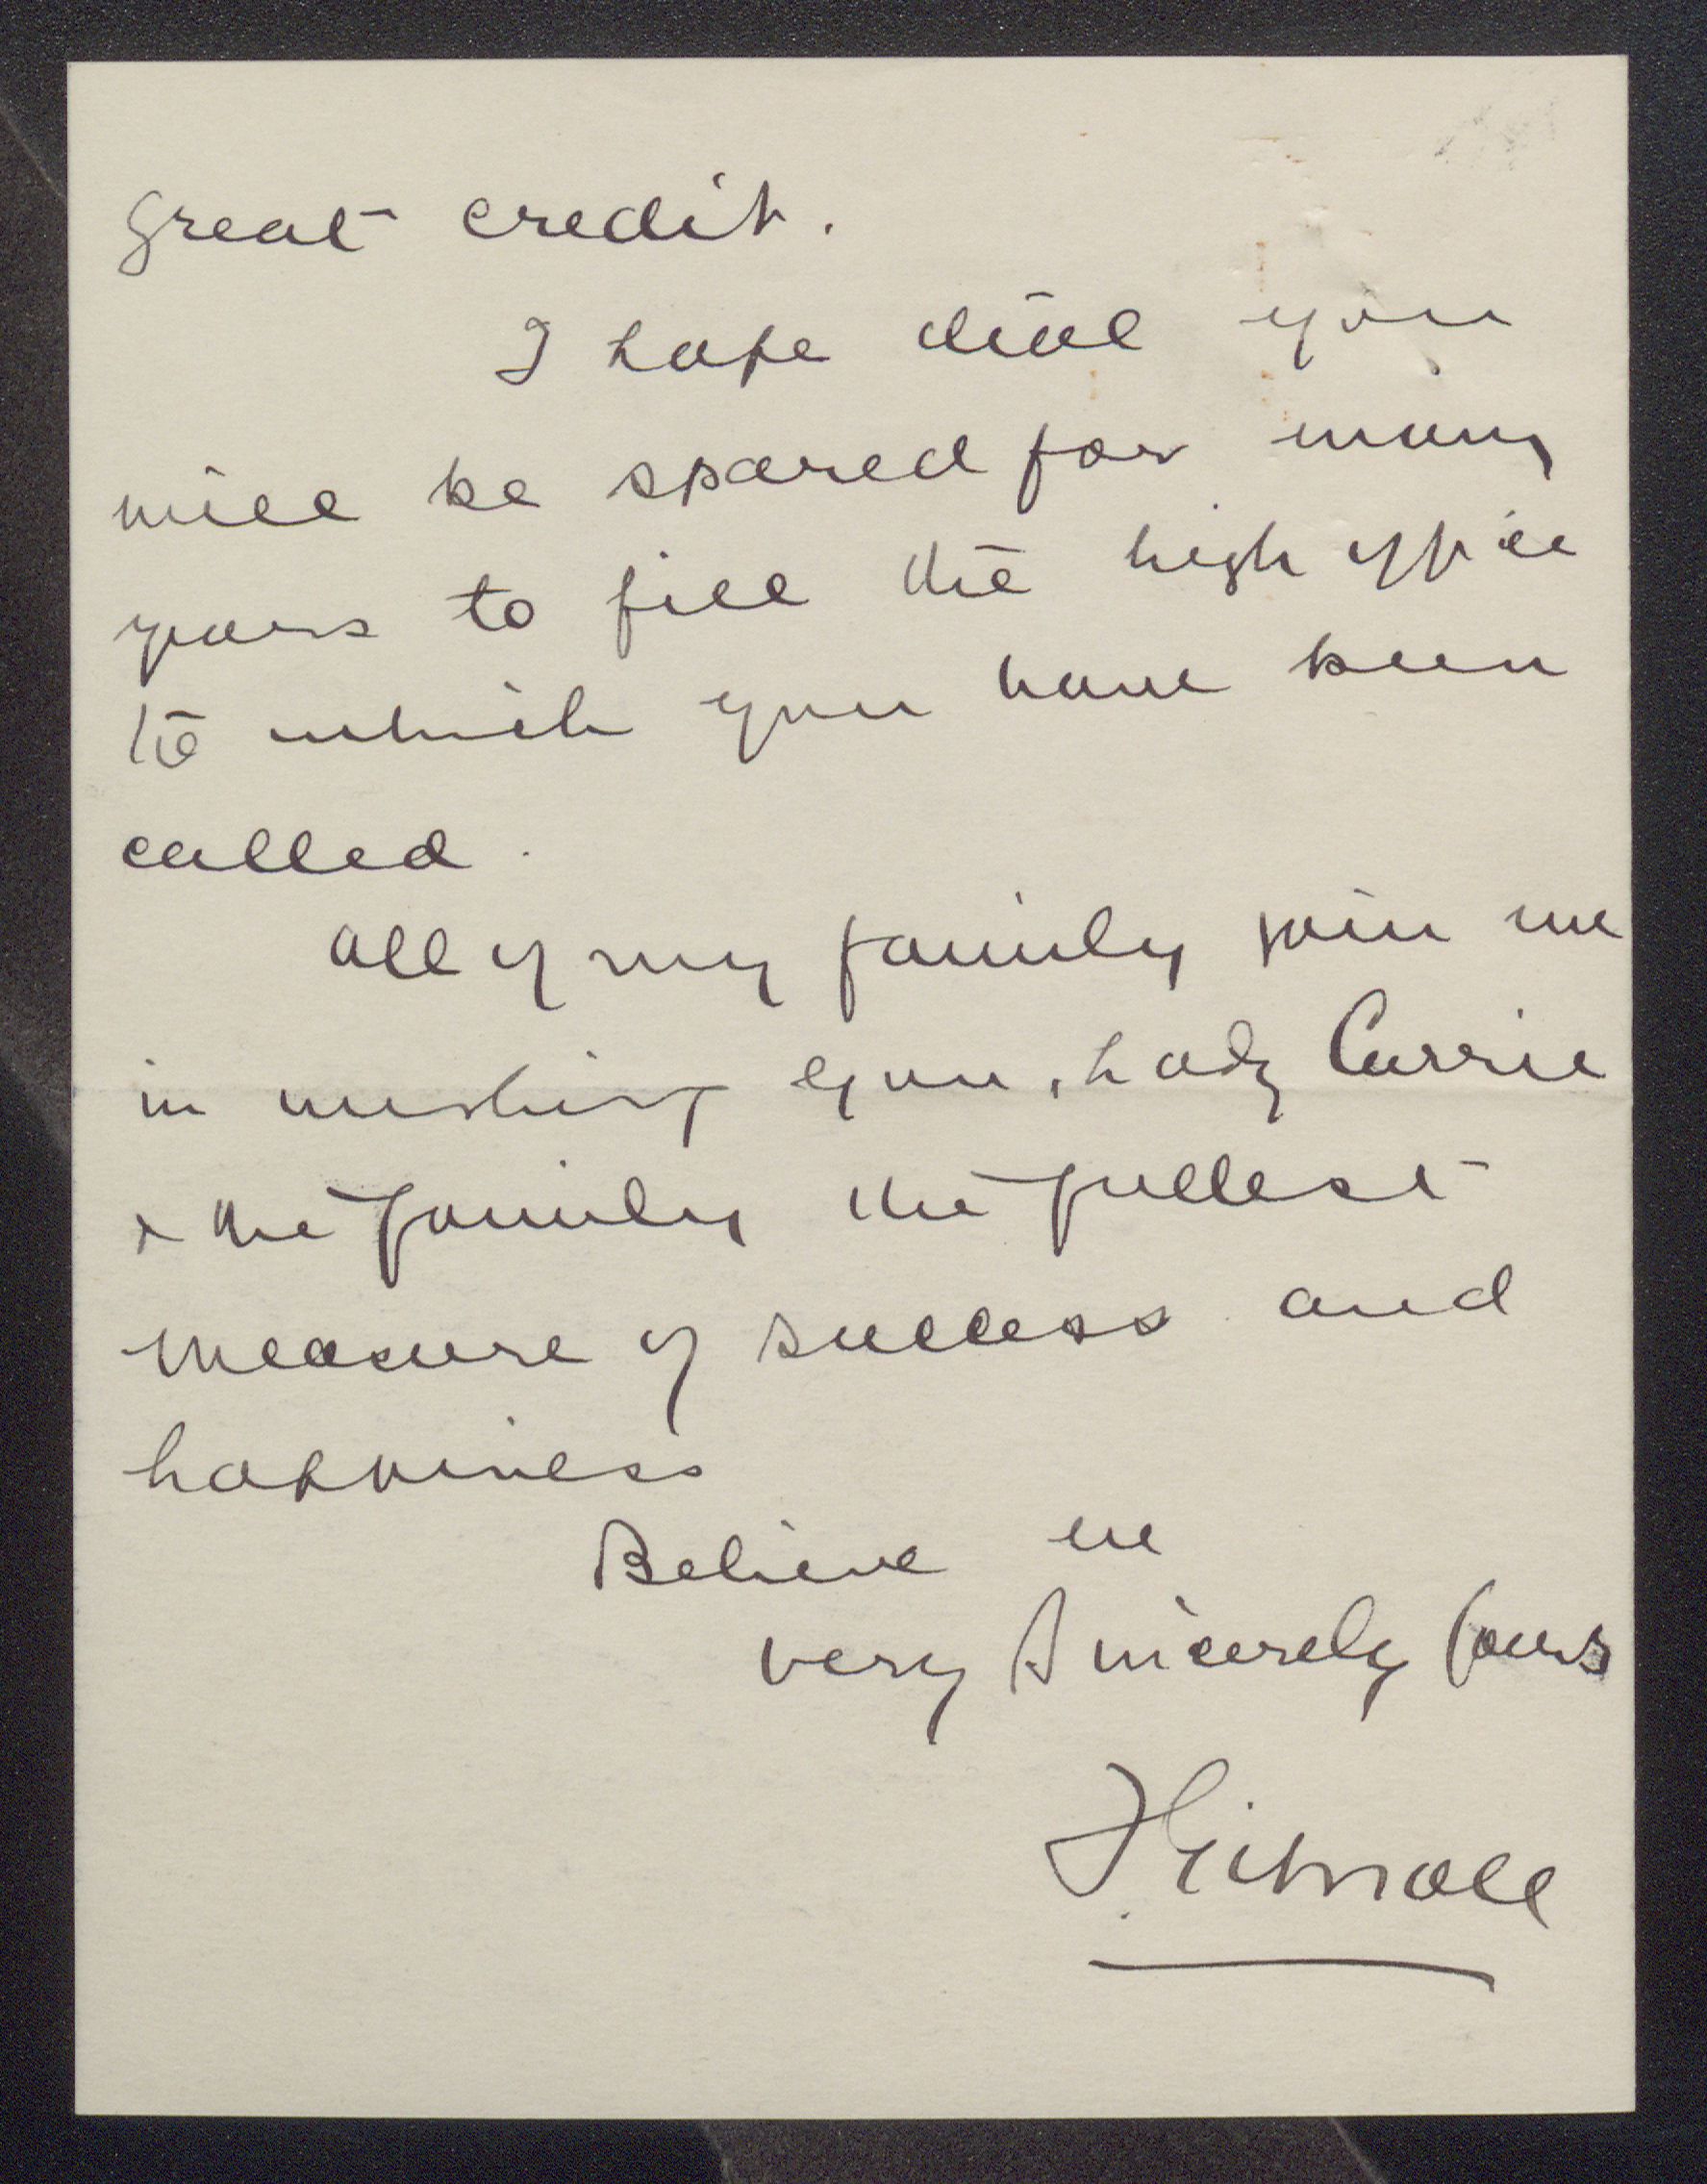 great credit.
I hope that you
will be spared for many
years to fill the high office
to which you have been
called.
All of my family join me
in wishing you, Lady Currie
& the family the fullest
measure of success and
happiness
Believe me
very Sincerely Yours